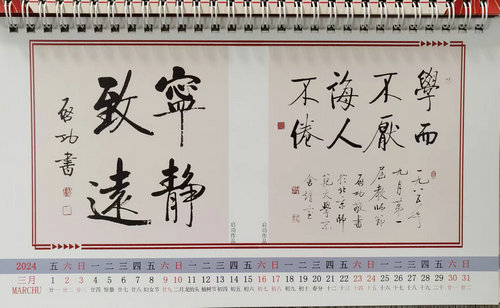 寧靜
致遠
啓功書
启功作品
學而
不厭
誨人
不倦
一九八五年
九月第一
屆教師節
啓功敬書
於北京師
範大學
启功作品
2024 五 六 日 一 二 三 四 五 六 日 一 二 三 四 五 六 日 一 二 三 四 五 六 日 一 二 三 四 五 六 日
三月 1 2 3 4 5 6 7 8 9 10 11 12 13 14 15 16 17 18 19 20 21 22 23 24 25 26 27 28 29 30 31
MARCHU 廿一 廿二 廿三 廿四 惊蛰 廿六 廿七 妇女节 廿九 二月 龙抬头 植树节 初四 初五 初六 初七 初八 初九 初十 春分 十二 十三 十四 十五 十六 十七 十八 十九 二十 廿一 廿二